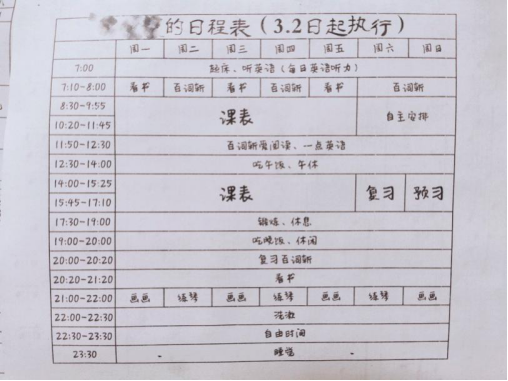 的日程表(3.2日起执行)
周一 周二 周三 周四 周五 周六 周日
7:00 起床、听英语(每日英语听力)
7:10-8:00 看书 百词斩 看书 百词斩 看书 百词斩
8:30-9:55 课表 自主安排
10:20-11:45
11:50-12:30 百词斩爱阅读、一点英语
12:30-14:00 吃午饭、午休
14:00-15:25 课表 复习 预习
15:45-17:10
17:30-19:00 锻炼、休息
19:00-20:00 吃晚饭、休闲
20:00-20:20 复习百词斩
20:20-21:20 看书
21:00-22:00 画画 练琴 画画 练琴 画画 练琴 画画
22:00-22:30 洗漱
22:30-23:30 自由时间
23:30 睡觉